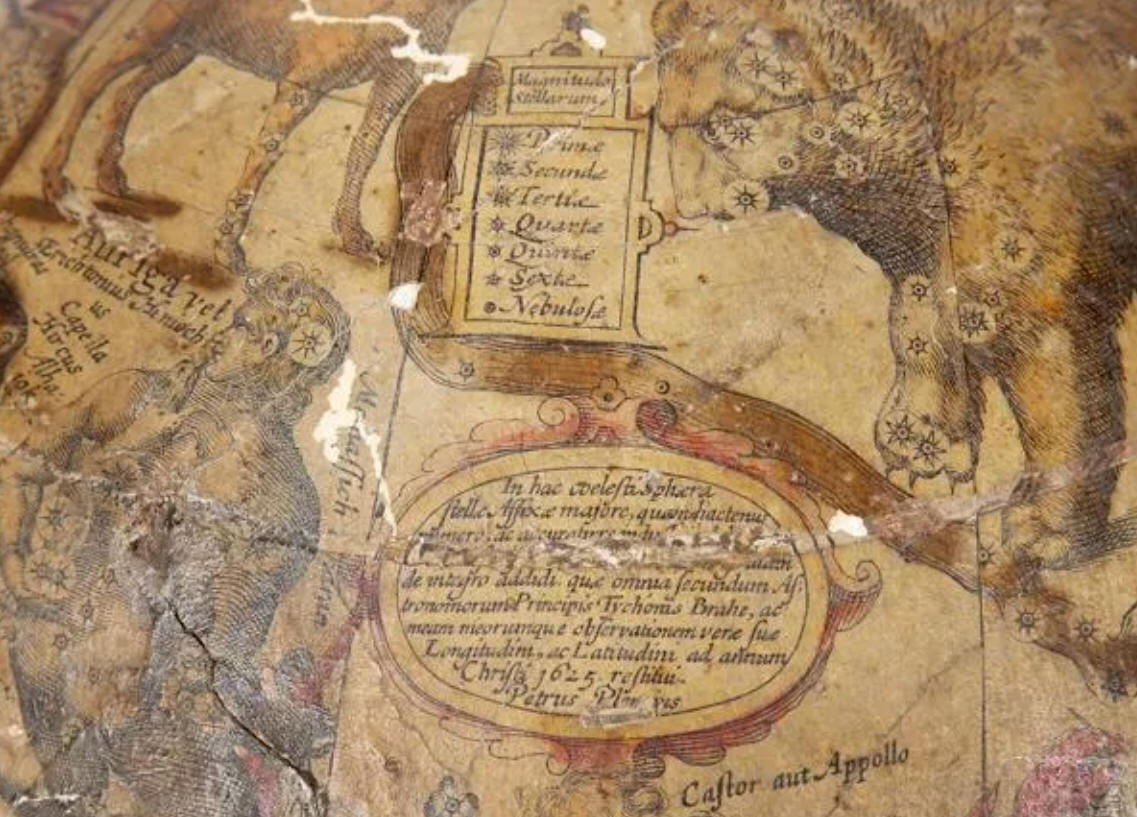 Magnitudo
Stellarum
Primæ
Secundæ
Tertiæ
Quartæ
Quintæ
Sextæ
Nebulosæ
Auriga vel
Erichtonius Henioch
us
Capella
Hircus
In hac coelesti Sphæra
stellæ Affixæ majore, quam hactenus
numero, ac accuratiore
de integro addidi quæ omnia secundum As:
tronomorum Principis Tychonis Brahe, ac
meam meorumque observationem veræ suæ
Longitudini, ac Latitudini ad annum
Christi 1625 restitui.
Petrus
Castor aut Appollo